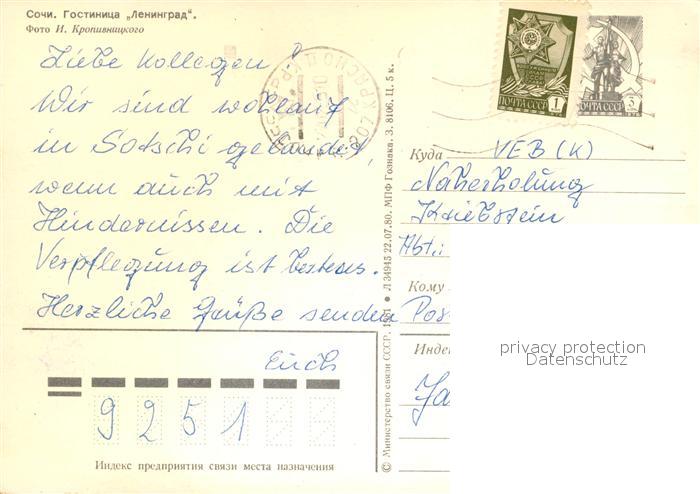 Сочи. Гостиница „Ленинград“.
Фото И. Кропивницкого
Liebe Kollegen!
Wir sind wohlauf
in Sotschi gelandet,
wenn auch mit
Hindernissen. Die
Verpflegung ist bestens.
Herzliche Grüße senden
Euch
9251
Индекс предприятия связи места назначения
© Министерство связи СССР. 1981 ● Л 34945 22.07.80. МПФ Гознака. З. 8106. Ц. 5 к.
ПОЧТА СССР 1
ПОЧТА СССР 3
Куда VEB (K)
Naherholung
Kriebstein
Abt.:
Кому
Pos
Инде
privacy protection
Datenschutz